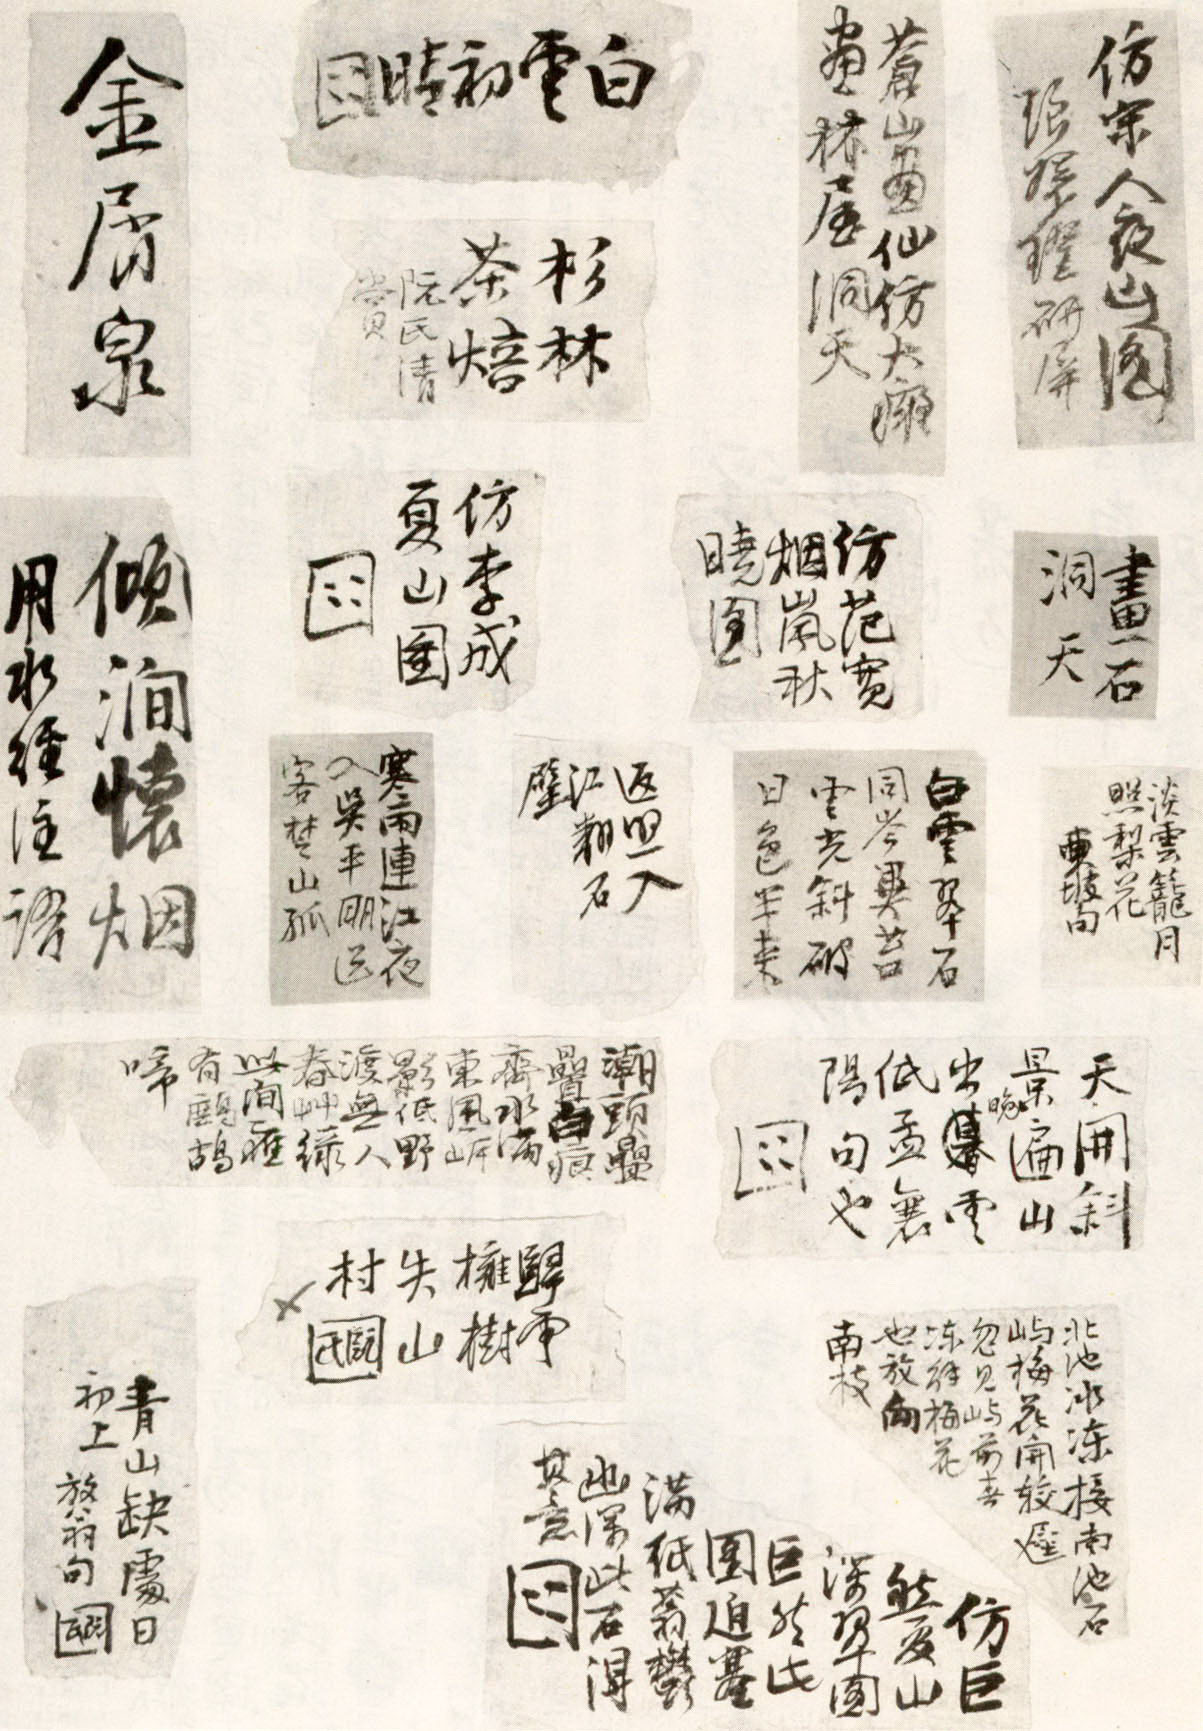 仿宋人夜山圖
張琛璧研屏
蒼山畫仙仿大癡
畫林屋洞天
白雲初晴
金屑泉
杉林
茶焙
阮氏清
賞
畫石
洞天
仿范寬
烟嵐秋
曉圖
仿李成
夏山圖
傾澗懷烟
用水經注語
淡雲籠月
照梨花
東坡句
白雲翠石
同岑異苔
雲光斜破
日色半來
返照入
江翻石
壁
寒雨連江夜
入吳平明送
客楚山孤
天開斜
景遍山
出晚雲
低孟襄
陽句也
潮頭疊
疊白痕
齊水滿
東風岸
影低野
渡無人
春艸綠
此間惟
有鷓鴣
啼
歸雲
擁樹
失山
村
北池冰凍接南池石
屿梅花開較遲
忽見屿前春
凍解梅花
也放向
南枝
青山缺處日
初上 放翁句
仿巨
然夏山
深翠圖
巨然此
圖迫塞
滿紙蓊鬱
幽深此石得
其意